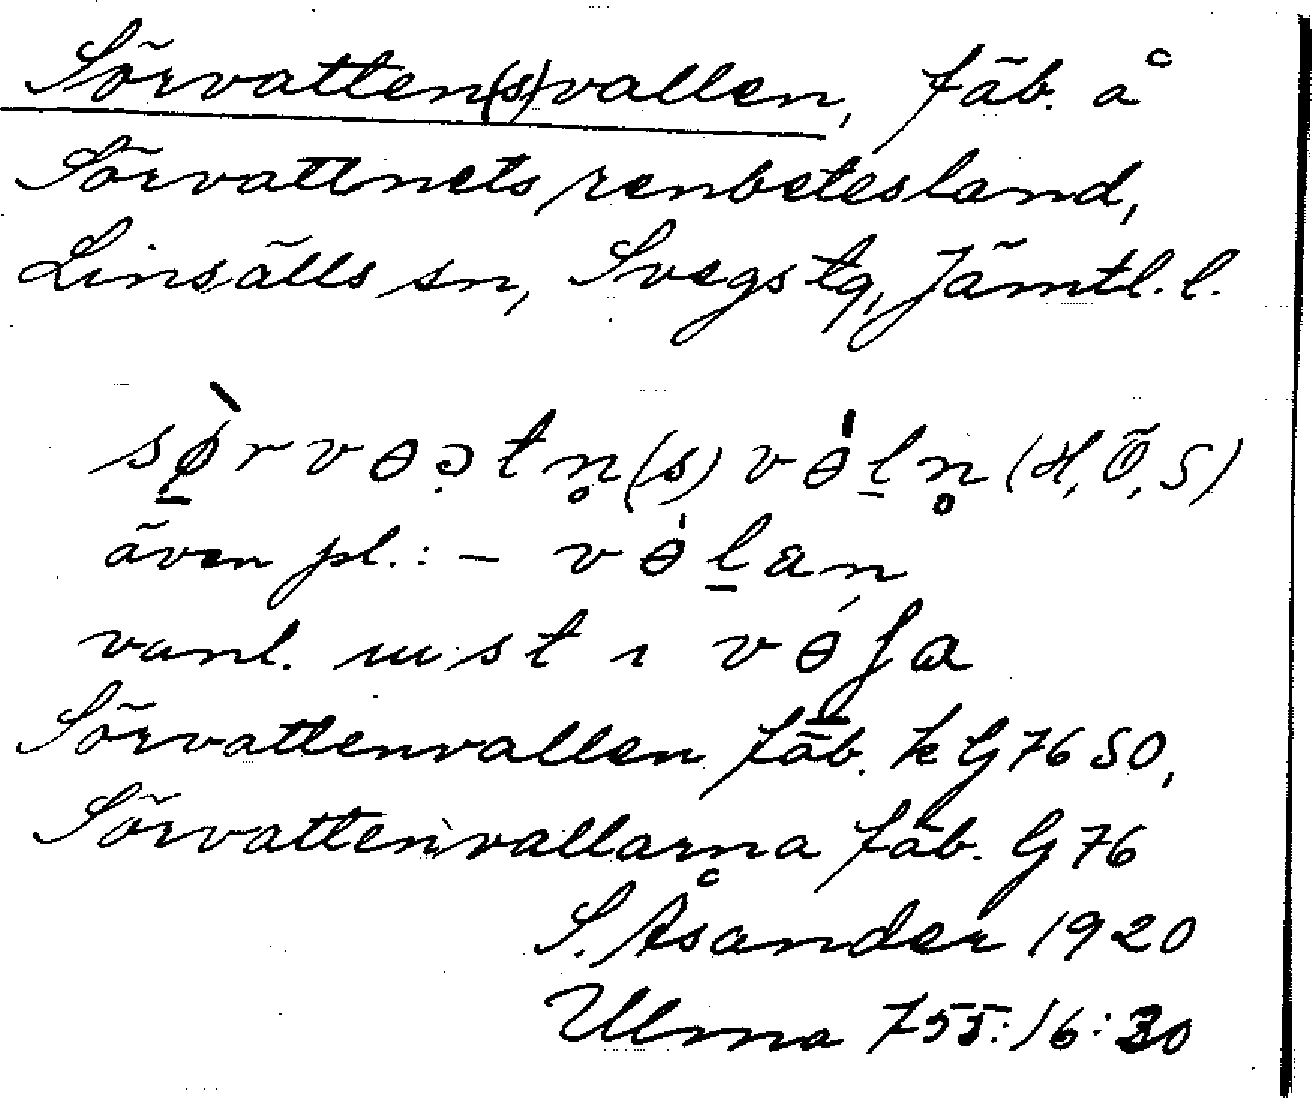 Sörvatten(s)vallen, fäb. å
Sörvattnets renbetesland,
Linsälls sn, Svegs tg, Jämtl. l.
sø̀rvɵɔtn̥(s)vɵ́ln̥ (H, Ö, S)
även pl.: – vɵ́lan
vanl. mst i vɵ́ʃa
Sörvattenvallen fäb. k G 76 SO,
Sörvattenvallarna fäb. G 76
S. Åsander 1920
Ulma 755:16:30